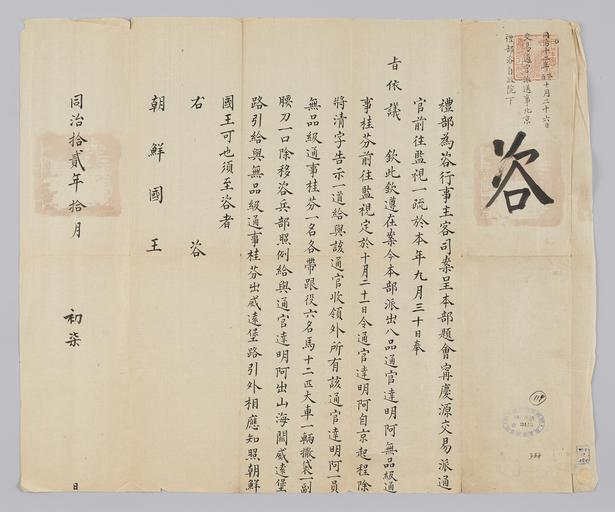 同治十二年癸酉十月二十六日
交易通官派送事北京
禮部咨自政院下
咨
禮部為咨行事主客司案呈本部題會甯慶源交易派通
官前往監視一疏於本年九月三十日奉
旨依議 欽此欽遵在案今本部派出八品通官達明阿無品級通
事桂芬前往監視定於十月二十一日令通官達明阿自京起程除
將清字告示一道給與該通官收領外所有該通官達明阿一員
無品級通事桂芬一名各帶跟役六名馬十二匹大車一輛撒袋一副
腰刀一口除移咨兵部照例給與通官達明阿出山海關威遠堡
路引給與無品級通事桂芬出威遠堡路引外相應知照朝鮮
國王可也須至咨者
右 咨
朝鮮國王
同治拾貳年拾月 初柒
日
119
334